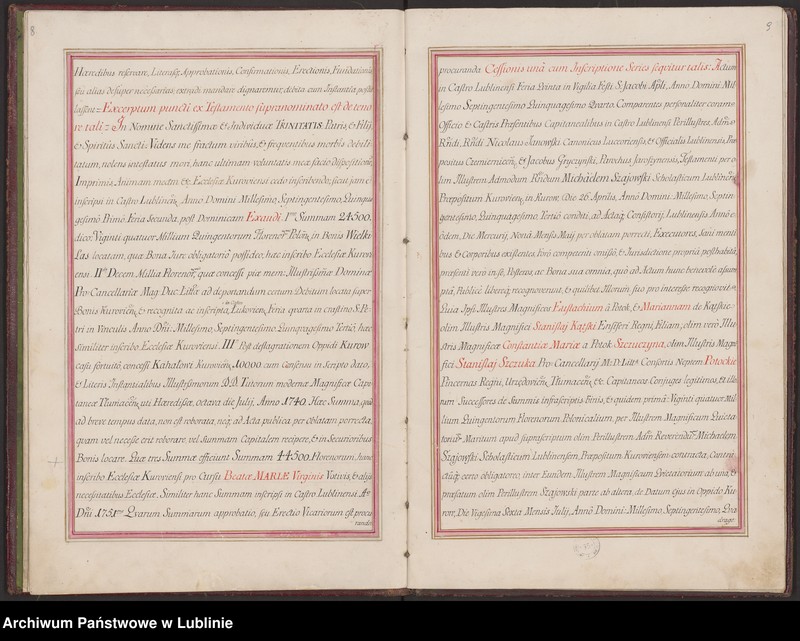 8
Hæredibus reservare, Literasq; Approbationis, Confirmationis, Erectionis, Fundationis
sui alias desuper necessarias extradi mandare dignaremur, debita cum Instantia, postu
lassent: Excerptum puncti ex Testamento supranominato est de teno
re tali: In Nomine Sanctissimæ & Individuæ TRINITATIS: Patris, & Filij,
& Spiritûs Sancti. Videns me fractum viribus, & frequentibus morbis debili
tatum, nolens intestatus mori, hanc ultimam voluntatis meæ facio dispositionē,
Imprimis Animam meam &c. Ecclesiæ Kuroviensi cedo inscribendo, sicut jam &
inscripsi in Castro Lublinen̄, Anno Domini Millesimo, Septingentesimo, Quinqua
gesimô Primô Feria Secunda, post Dominicam Exaudi. Imo Summam 24500,
dico: Viginti quatuor Millium Quingentorum Florenor̄ Polōn, in Bonis Wielki
Las locatam, quæ Bona Jure obligatoriô possideo, hac inscribo Ecclesiæ Kurovi
ensi. IIdo Decem Millia Florenor̄, quæ concessi piæ mem: Illustrissimæ Dominæ
Pro-Cancellariæ Mag: Duc: Litt: ad deportandum certum Debitum locata super
Bonis Kurovien̄, & recognita ac inscripta, in Castro Lukovien̄, Feria quarta in crastino S. Pe
tri in Vinculis Anno Dn̄i: Millesimo, Septingentesimo, Quinquagesimo Tertiô, hac
similiter inscribo Ecclesiæ Kuroviensi. III° Post deflagrationem Oppidi Kurow
casu fortuitô, concessi Kahałowi Kurovien̄, 10000. cum Consensu in Scripto dato,
& Literis Instantialibus Illustrissimorum D.D. Tutorum modernæ Magnificæ Capi
taneæ Tłumacen̄, uti Hæredissæ, octava die Julij, Anno 1740. Hæc Summa, quia
ad breve tempus data, non est roborata, neq; ad Acta publica per Oblatam porrecta,
quam vel necesse erit roborare, vel Summam Capitalem recipere, & in Securioribus
Bonis locare. Quæ tres Summæ efficiunt Summam 44500. Florenorum, hanc
inscribo Ecclesiæ Kuroviensi pro Cursu Beatæ MARIÆ Virginis Votivis, & alijs
necessitatibus Ecclesiæ. Similiter hanc Summam inscripsi in Castro Lublinensi. Ao
Dn̄i 1751mo Quarum Summarum approbatio, seu Erectio Vicariorum est procu
randa
9
procuranda Cessionis unà cum Inscriptione Series sequitur talis: Actum
in Castro Lublinensi Feria Quinta in Vigilia Festi S: Jacobi Apli, Anno Domini Mil
lesimo Septingentesimo Quinquagesimo Quarto. Comparentes personaliter coram
Officio & Castris Præsentibus Capitanealibus in Castro Lublinensi Perillustres, Adm̄o
Rn̄di, Rn̄di Nicolaus Janowski Canonicus Luceoriensis, & Officialis Lublinensis, Præ
positus Czemiernicen̄, & Jacobus Gryczynski, Parochus Janssyensis, Testamenti per o
lim Illustrem Admodum Rn̄dum Michäelem Szajowski Scholasticum Lublinen̄
Præpositum Kurovien̄, in Kurow. Die 26 Aprilis, Anno Domini Millesimo, Septin
gentesimo, Quinquagesimo, Tertiô conditi, ad Actaq; Consistorij Lublinensis Annô e
ôdem, Die Mercurij, Nonâ Mensis Maij per oblatam porrecti, Executores, Sani menti
bus & corporibus existentes, Forô competenti omissô, & Jurisdictione propriâ posthabitâ,
præsenti verò in se, Posteros, ac Bona sua omnia, quò ad Actum hunc benevolè assum
ptâ, Publicè liberèq; recognoverunt, & quilibet Illorum suo pro interesse recognovit
Quia Ipsi Illustres Magnificos Eustachium à Potok, & Mariannam de Kątskie:
olim Illustris Magnifici Stanislaj Kątski Ensiferi Regni, Filiam, olim verò Illu
stris Magnificæ Constantiæ Mariæ a Potok Szczuczyna, olim Illustris Magni
fici Stanislaj Szczuka Pro-Cancellarij M:D: Litt: Consortis Neptem Potockie
Pincernas Regni, Urzędovien̄, Tłumacen̄, &c. Capitaneos Conjuges legitimos, & illo
rum Successores de Summis infrascriptis Fiinis, & quidem primâ: Viginti quatuor Mil
lium Quingentorum Florenorum Polonicalium, per Illustrem Magnificum Quieta
torum Maritum apud suprascriptum olim Perillustrem Adm̄ Reverend̄ Michäelem
Szajowski Scholasticum Lublinensem, Præpositum Kuroviensem contracta, Contra
ctûq; certo obligatorio, inter Eundem Illustrem Magnificum Quietatorium ab una, &
præfatum olim Perillustrem Szajowski parte ab altera, de Datum ejus in Oppido Ku
row, Die Vigesima Sexta Mensis Julij, Annô Domini: Millesimo, Septingentesimo, Qua
drage
Archiwum Państwowe w Lublinie